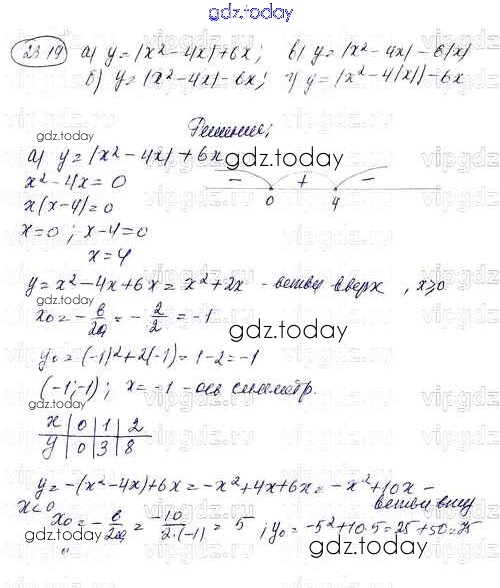 gdz.today
23.19 а) y = |x² - 4x| + 6x; в) y = |x² - 4x| - 6|x|
б) y = |x² - 4x| - 6x; г) y = |x² - 4|x|| - 6x
gdz.today
Решение:
а) y = |x² - 4x| + 6x
gdz.today
x² - 4x = 0
- + -
x(x-4) = 0
0 4
x = 0 ; x - 4 = 0
x = 4
y = x² - 4x + 6x = x² + 2x - ветви вверх , x≥0
x₀ = - b/2a = - 2/2 = -1
gdz.today
y₀ = (-1)² + 2(-1) = 1 - 2 = -1
(-1;-1) ; x = -1 - ось симметр.
gdz.today
x | 0 | 1 | 2
y | 0 | 3 | 8
y = -(x² - 4x) + 6x = -x² + 4x + 6x = -x² + 10x -
x<0 ветви вниз
gdz.today
x₀ = - b/2a = -10/2·(-1) = 5 ; y₀ = -5² + 10·5 = 25 + 50 = 75
gdz.today